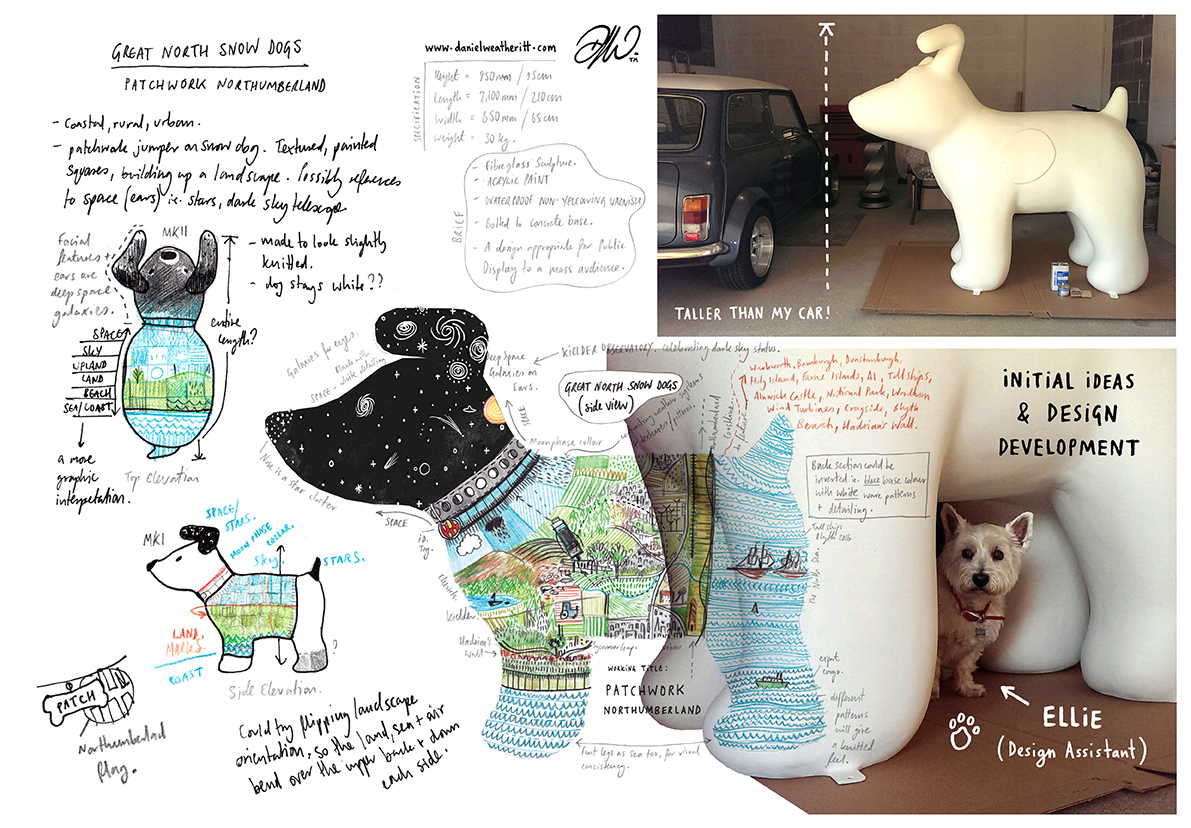 GREAT NORTH SNOW DOGS
PATCHWORK NORTHUMBERLAND
- Coastal, rural, urban.
- patchwork jumper on snow dog. Textured, painted
squares, building up a landscape. Possibly references
to space (ears) i.e. stars, dark sky telescope
facial
features +
ears are
deep space
galaxies.
MKII
- made to look slightly
knitted.
- dog stays white??
entire
length?
SPACE
SKY
UPLAND
LAND
BEACH
SEA/COAST
a more
graphic
interpretation.
Top Elevation
MKI
SPACE/
STARS.
MOON PHASE
COLLAR.
Sky
STARS.
LAND
MARKS
COAST
?
Side Elevation.
PATCH
Northumberland
Flag.
Could try flipping landscape
orientation, so the land, sea + air
bend over the upper back + down
each side.
www.danielweatheritt.com
DW TM
SPECIFICATION
Height = 950mm / 95cm
Length = 2,100mm / 210cm
Width = 650mm / 65cm
Weight = 30kg.
BRIEF
- Fibreglass Sculpture.
- ACRYLIC PAINT
- WATERPROOF NON-YELLOWING VARNISH
- Bolted to concrete base.
- A design appropriate for Public
Display to a mass audience.
TALLER THAN MY CAR!
Galaxies for eyes.
SPACE - white detailing
Nose is a star cluster
SPACE
Deep Space
Galaxies on
Ears.
KIELDER OBSERVATORY. celebrating dark sky status.
SPACE
GREAT NORTH SNOW DOGS
(side view)
Moonphase collar
i.D.
Tag.
Cheviots
Kielder
Hadrian's
Wall
WORKING TITLE:
PATCHWORK
NORTHUMBERLAND
Front legs as sea too, for visual
consistency.
Warkworth, Bamburgh, Dunstanburgh,
Holy Island, Farne Islands, A1, Tall Ships,
Alnwick Castle, National Park, Woodhorn
Wind Turbines, Cragside, Blyth
Beach, Hadrian's Wall.
Back section could be
inverted i.e. blue base colour
with white wave patterns
+ detailing.
Tall ships
Blyth 2016
The North Sea.
different
patterns
will give
a knitted
feel.
INITIAL IDEAS
& DESIGN
DEVELOPMENT
ELLIE
(Design Assistant)